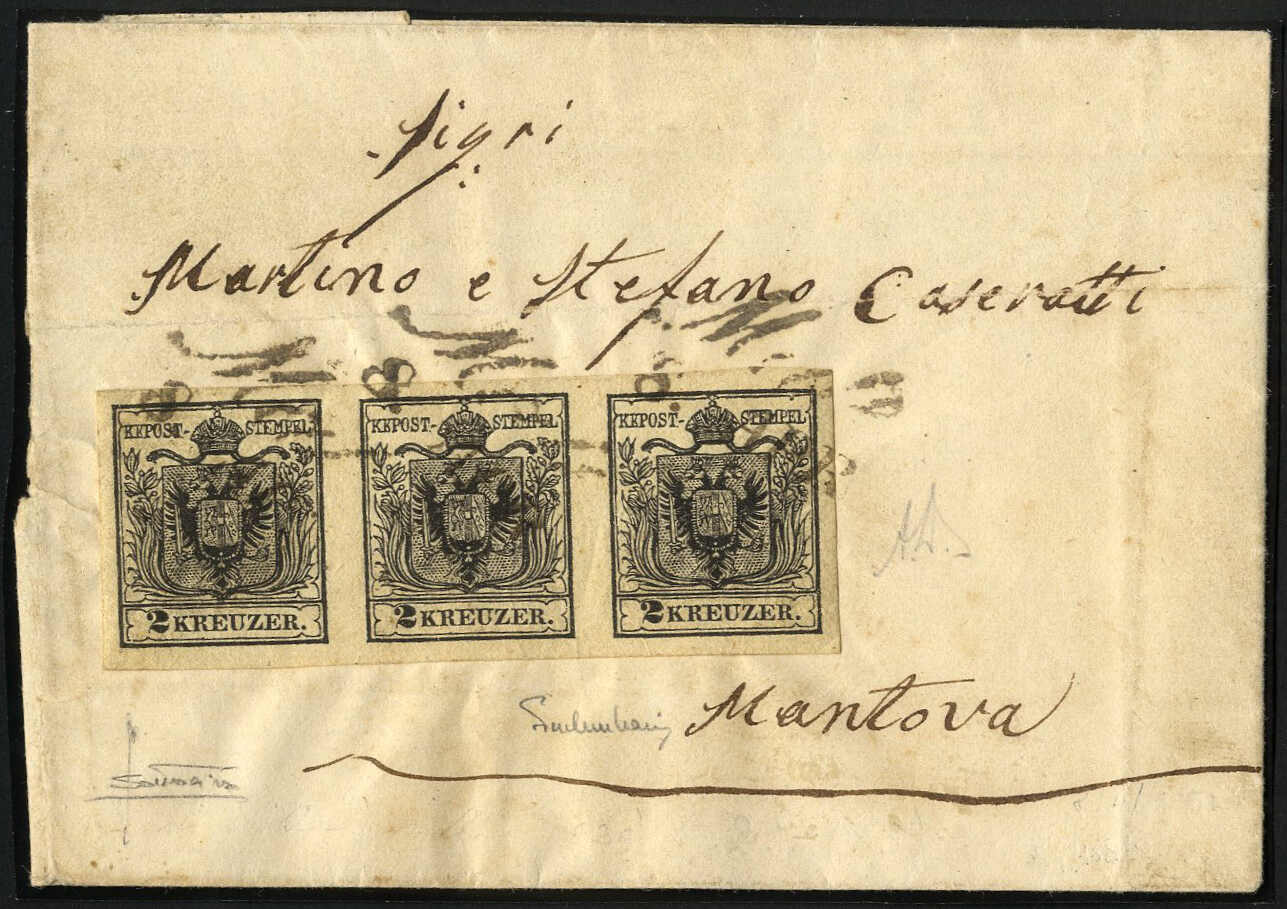 Sigri
Martino e Stefano Caseratti
KKPOST-STEMPEL KKPOST-STEMPEL KKPOST-STEMPEL
2 KREUZER. 2 KREUZER. 2 KREUZER.
A.D.
Mantova